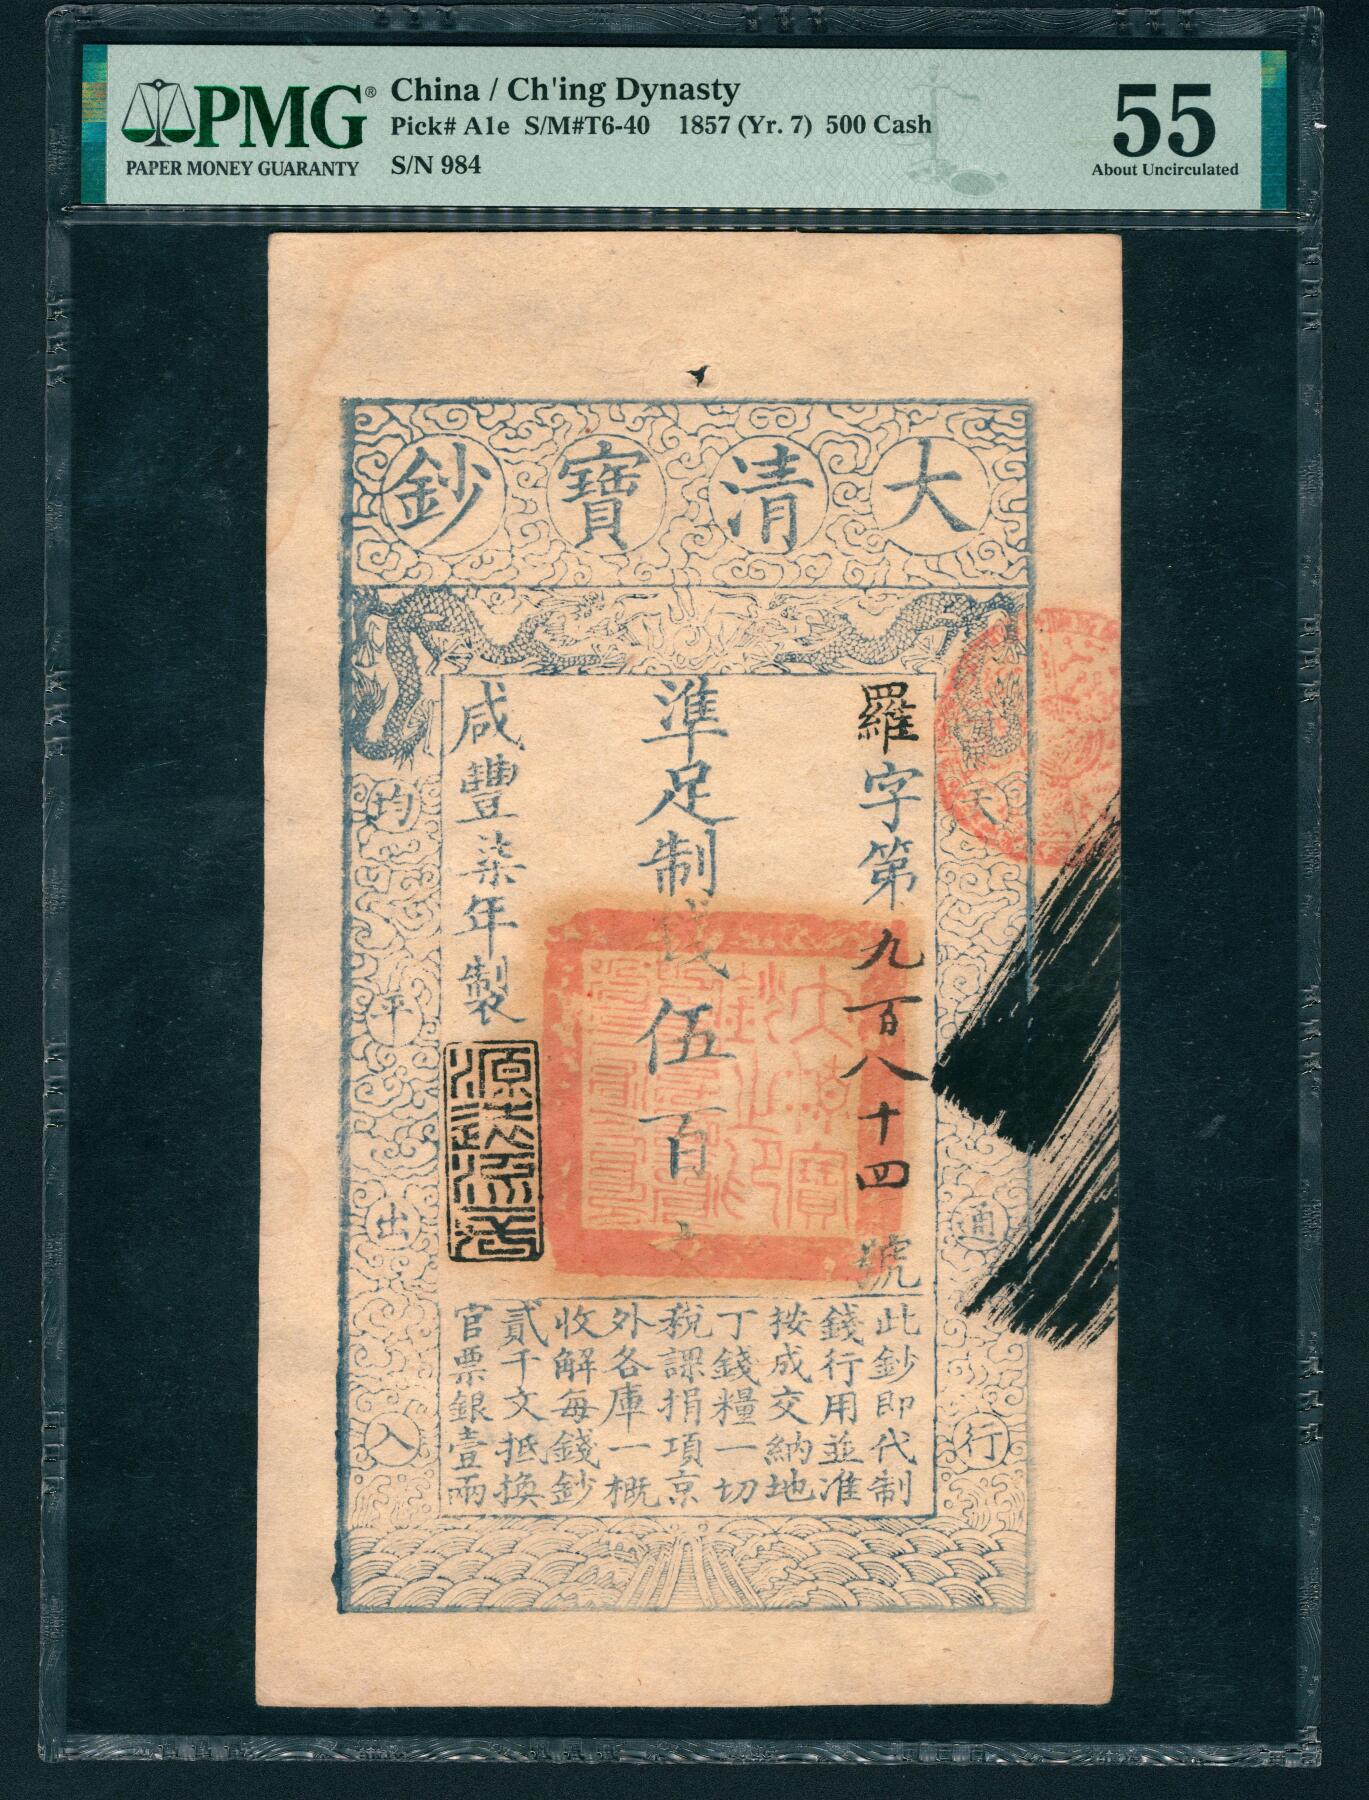 PMG®
PAPER MONEY GUARANTY
China / Ch'ing Dynasty
Pick# A1e S/M#T6-40 1857 (Yr. 7) 500 Cash
S/N 984
55
About Uncirculated
大清寶鈔
羅字第九百八十四號
準足制錢伍百文
咸豐柒年製
天
通行
均平出入
大清寶鈔之印
此鈔即代制
錢行用並准
按成交納地
丁錢糧一切
稅課捐項京
外各庫一概
收解每錢鈔
貳千文抵換
官票銀壹兩